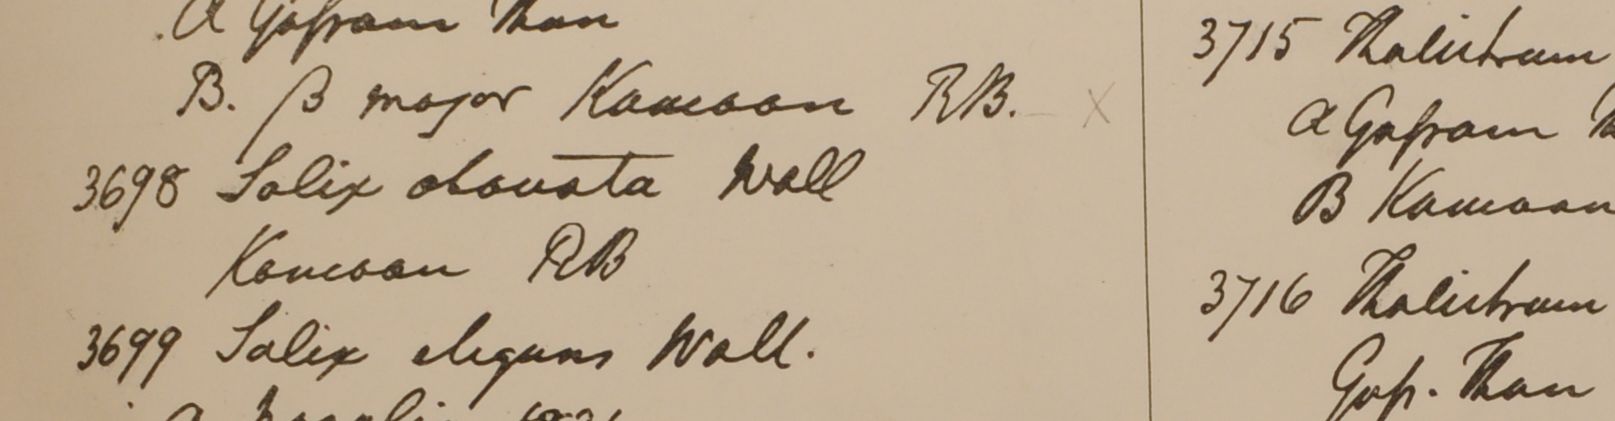 A Gossam Than
B. β major Kamaon RB. X
3698 Salix obovata Wall
Kamaon RB
3699 Salix elegans Wall.
3715 Thalictrum
A Gossam
B Kamaon
3716 Thalictrum
Goss. Than